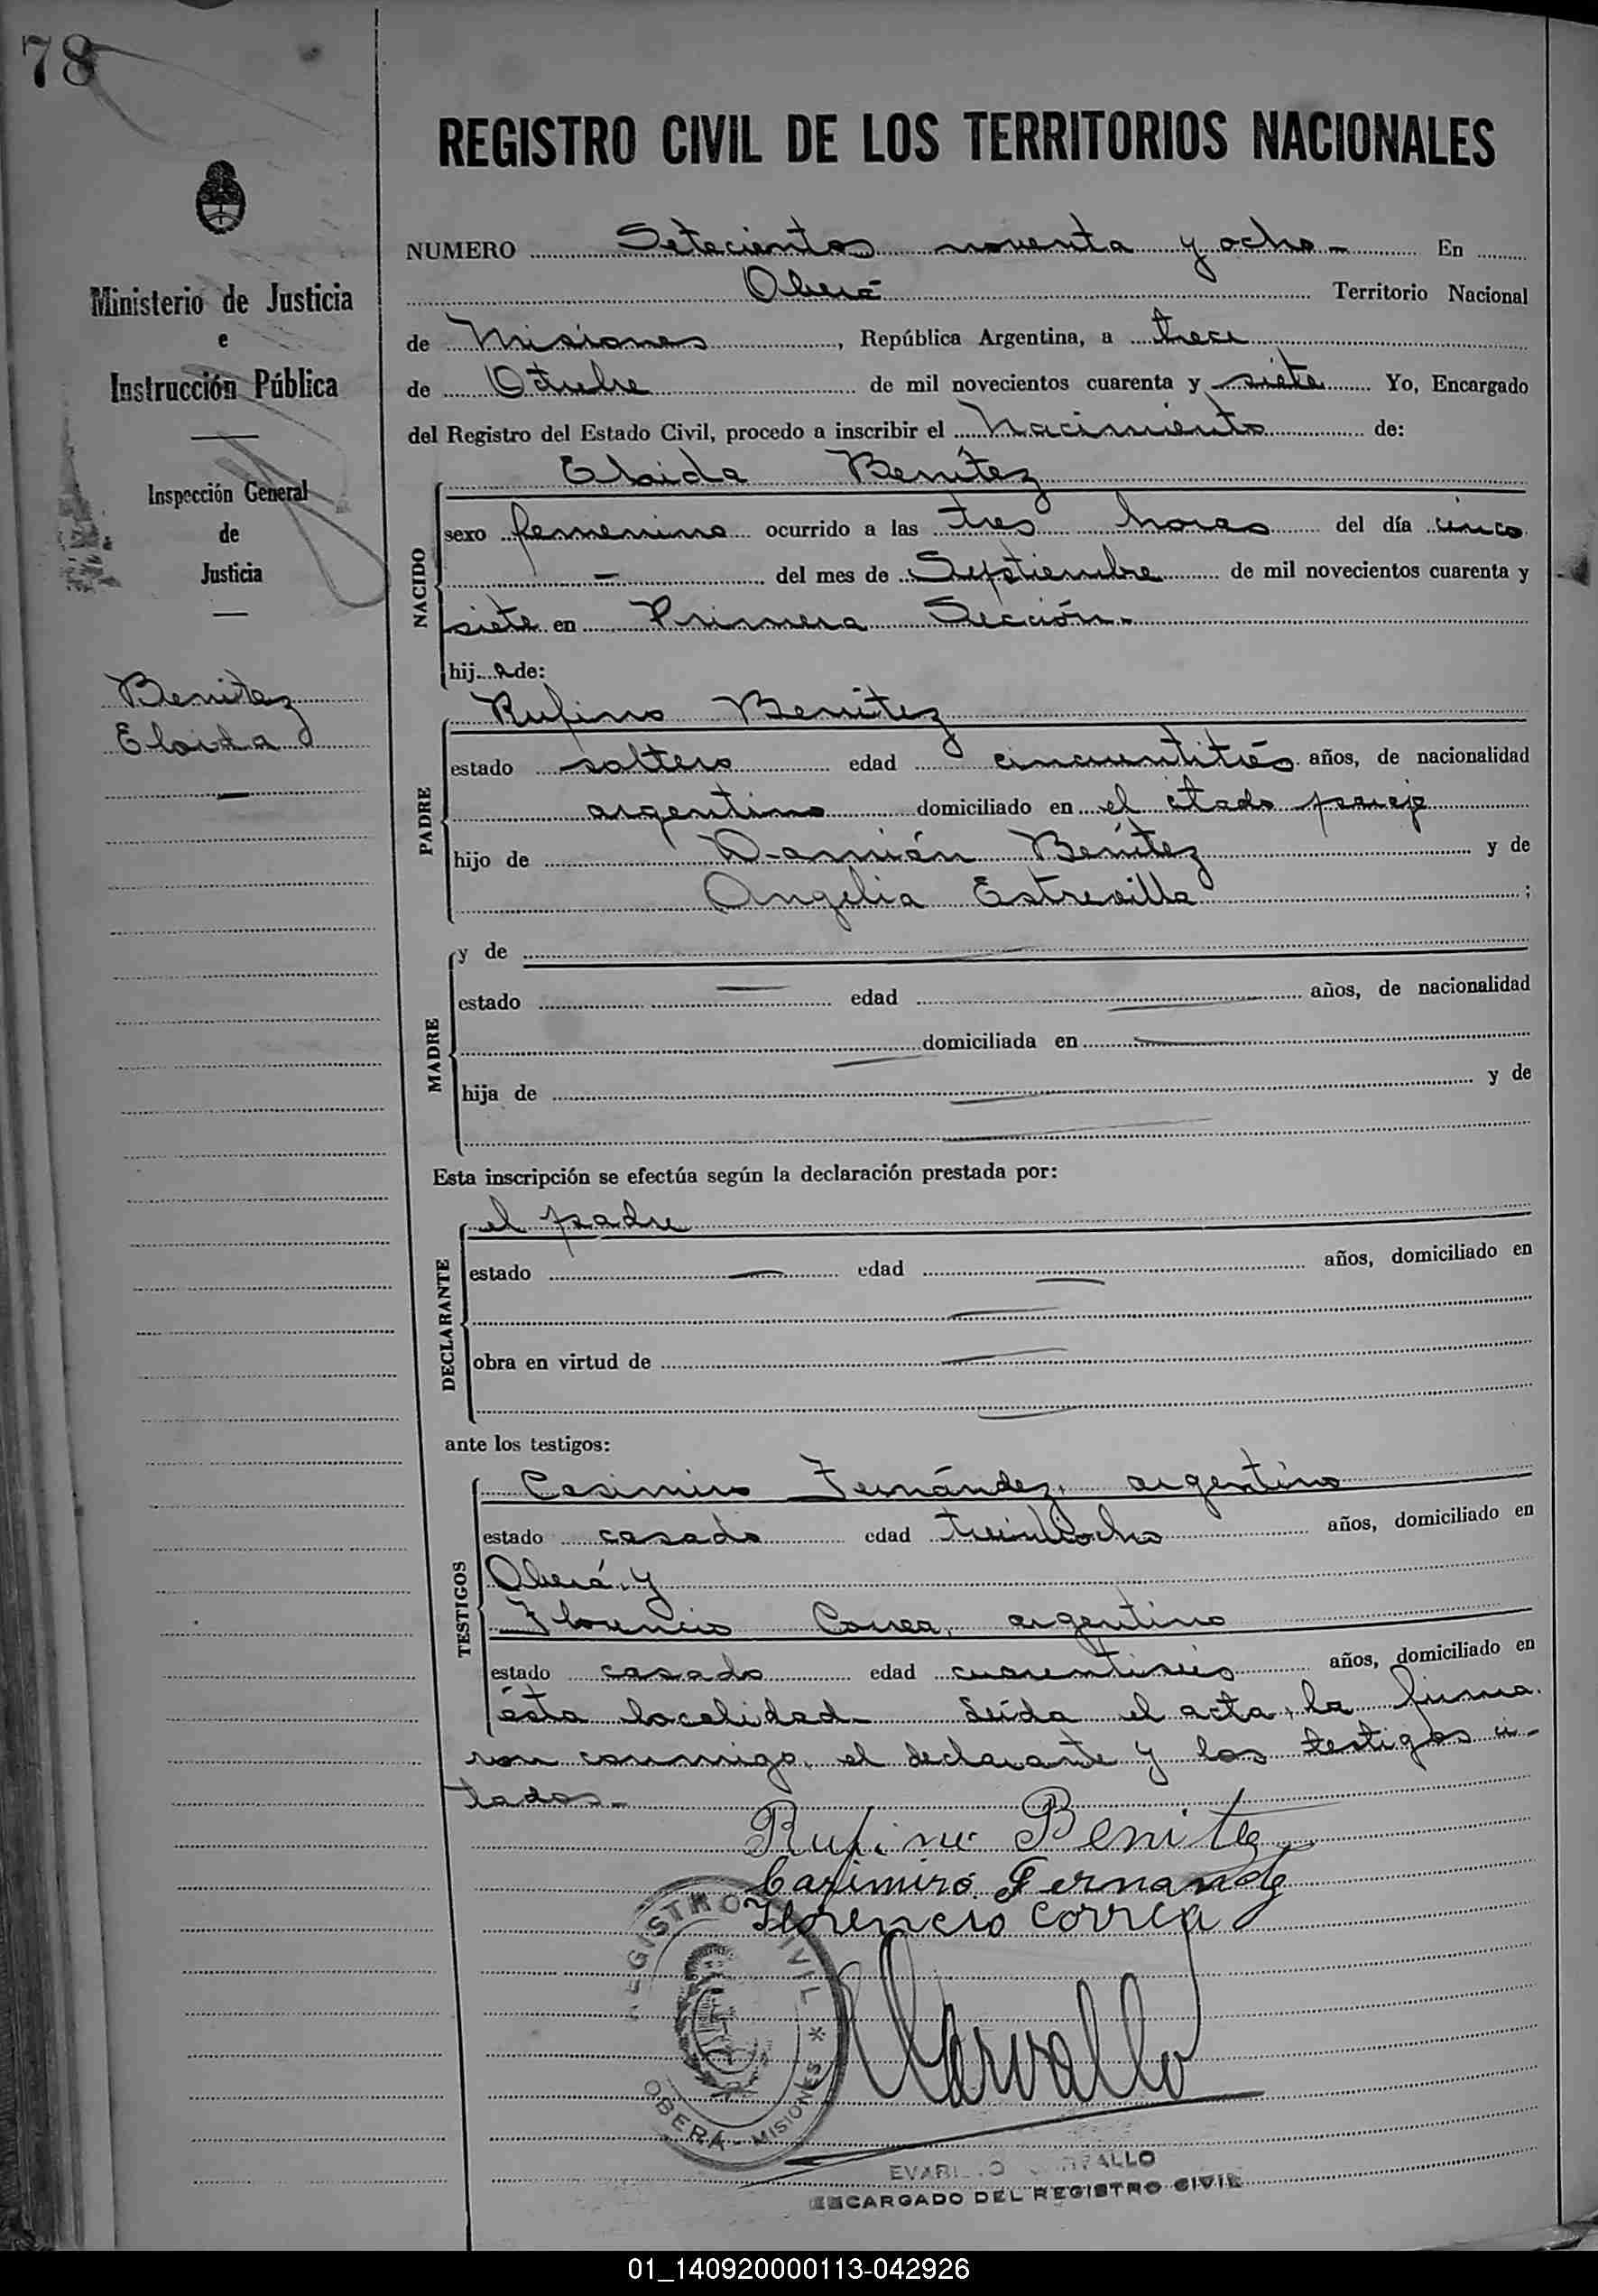 78
REGISTRO CIVIL DE LOS TERRITORIOS NACIONALES
Ministerio de Justicia
e
Instrucción Pública
Inspección General
de
Justicia
Benitez
Eloida
NUMERO Setecientos noventa y ocho- En
Oberá Territorio Nacional
de Misiones, República Argentina, a trece
de Octubre de mil novecientos cuarenta y siete Yo, Encargado
del Registro del Estado Civil, procedo a inscribir el Nacimiento de:
NACIDO
Eloida Benítez
sexo femenino ocurrido a las tres horas del día cinco
- del mes de Septiembre de mil novecientos cuarenta y
siete en Primera Sección.-
hij a de:
PADRE
Rufino Benítez
estado soltero edad cincuentitrés años, de nacionalidad
argentino domiciliado en el citado paraje
hijo de Damián Benítez y de
Angelia ;
MADRE
y de
estado — edad — años, de nacionalidad
— domiciliada en —
hija de — y de
—
Esta inscripción se efectúa según la declaración prestada por:
DECLARANTE
el padre
estado — edad — años, domiciliado en
—
obra en virtud de —
—
ante los testigos:
TESTIGOS
Casimiro Fernández, argentino
estado casado edad treintiocho años, domiciliado en
Oberá, y
Florencio Correa, argentino
estado casado edad cuarentiseis años, domiciliado en
ésta localidad. Leída el acta, la firma-
ron conmigo, el declarante y los testigos ci-
tados.-
Rufino Benitez
Casimiro Fernandez
Florencio Correa
Carvallo
REGISTRO CIVIL * OBERÁ - MISIONES *
ENCARGADO DEL REGISTRO CIVIL
01_140920000113-042926